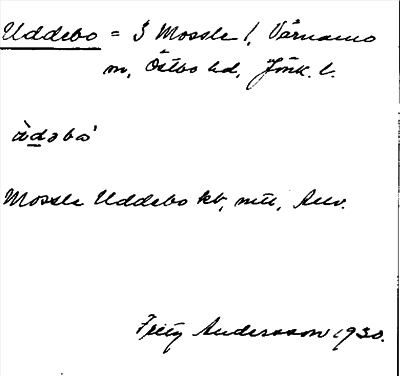 Uddebo = 3 Mossle l, Värnamo
m, Östbo hd, Jönk. l.
àdəbo'
Mossle Uddebo kt, mtl,
Fritz Andersson 1930.